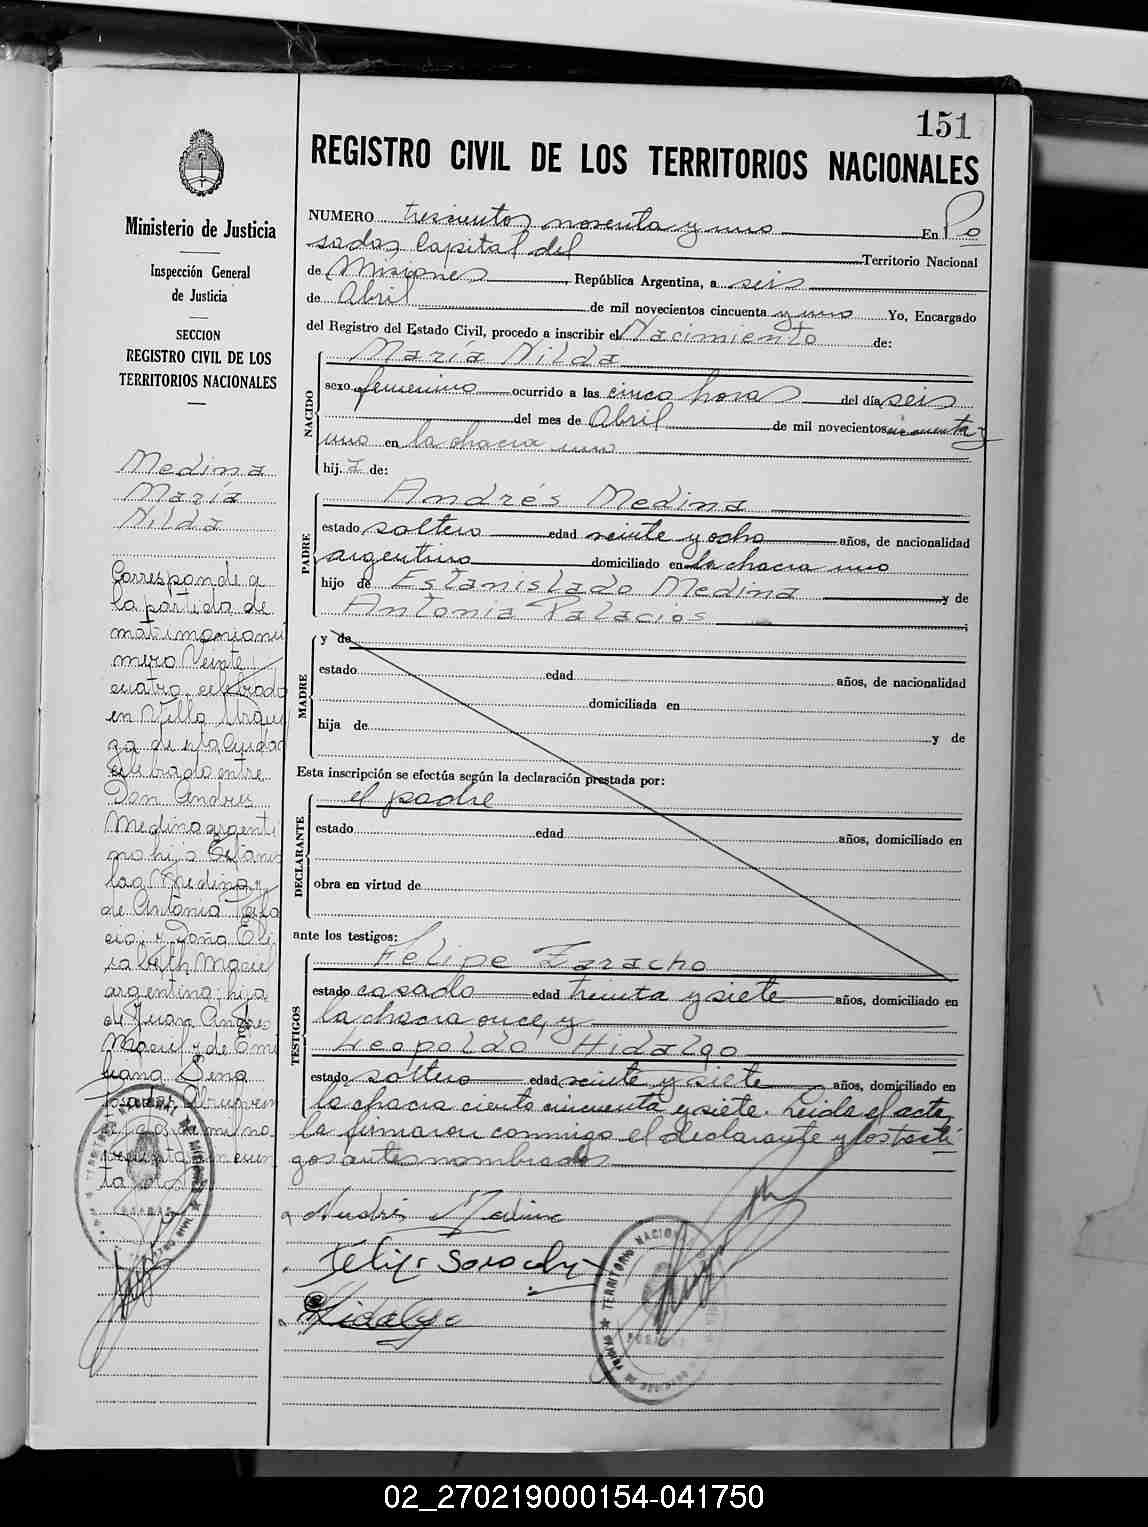 151
REGISTRO CIVIL DE LOS TERRITORIOS NACIONALES
Ministerio de Justicia
Inspección General
de Justicia
SECCION
REGISTRO CIVIL DE LOS
TERRITORIOS NACIONALES
Medina
María
Nilda
Corresponde a
la partida de
matrimonio nú
mero Veinte
cuatro, celebrado
en Villa Urqui
za de esta Ciudad
celebrado entre
Don Andres
Medina argenti
no hijo Estanis
lao Medina y
de Antonia Pala
cio; y Doña
Maciel
argentina; hija
de Juan Andres
Maciel y de
NUMERO trescientos noventa y uno En Po
sadas, Capital del Territorio Nacional
de Misiones, República Argentina, a seis
de Abril de mil novecientos cincuenta y uno Yo, Encargado
del Registro del Estado Civil, procedo a inscribir el Nacimiento de:
NACIDO
María Nilda
sexo femenino ocurrido a las cinco horas del día seis
del mes de Abril de mil novecientos cincuenta y
uno en la chacra uno
hij a de:
PADRE
Andrés Medina
estado soltero edad veinte y ocho años, de nacionalidad
argentino domiciliado en la chacra uno
hijo de Estanislado Medina y de
Antonia Palacios ;
MADRE
y de
estado edad años, de nacionalidad
domiciliada en
hija de y de
Esta inscripción se efectúa según la declaración prestada por:
DECLARANTE
el padre
estado edad años, domiciliado en
obra en virtud de
ante los testigos:
TESTIGOS
Felipe Zaracho
estado casado edad treinta y siete años, domiciliado en
la chacra once, y
Leopoldo Hidalgo
estado soltero edad veinte y siete años, domiciliado en
la chacra ciento cincuenta y siete. Leida el acta,
la firmaron conmigo el declarante y los testi
gos antes nombrados
Andrés Medina
Hidalgo
TERRITORIO NACIONAL
02_270219000154-041750